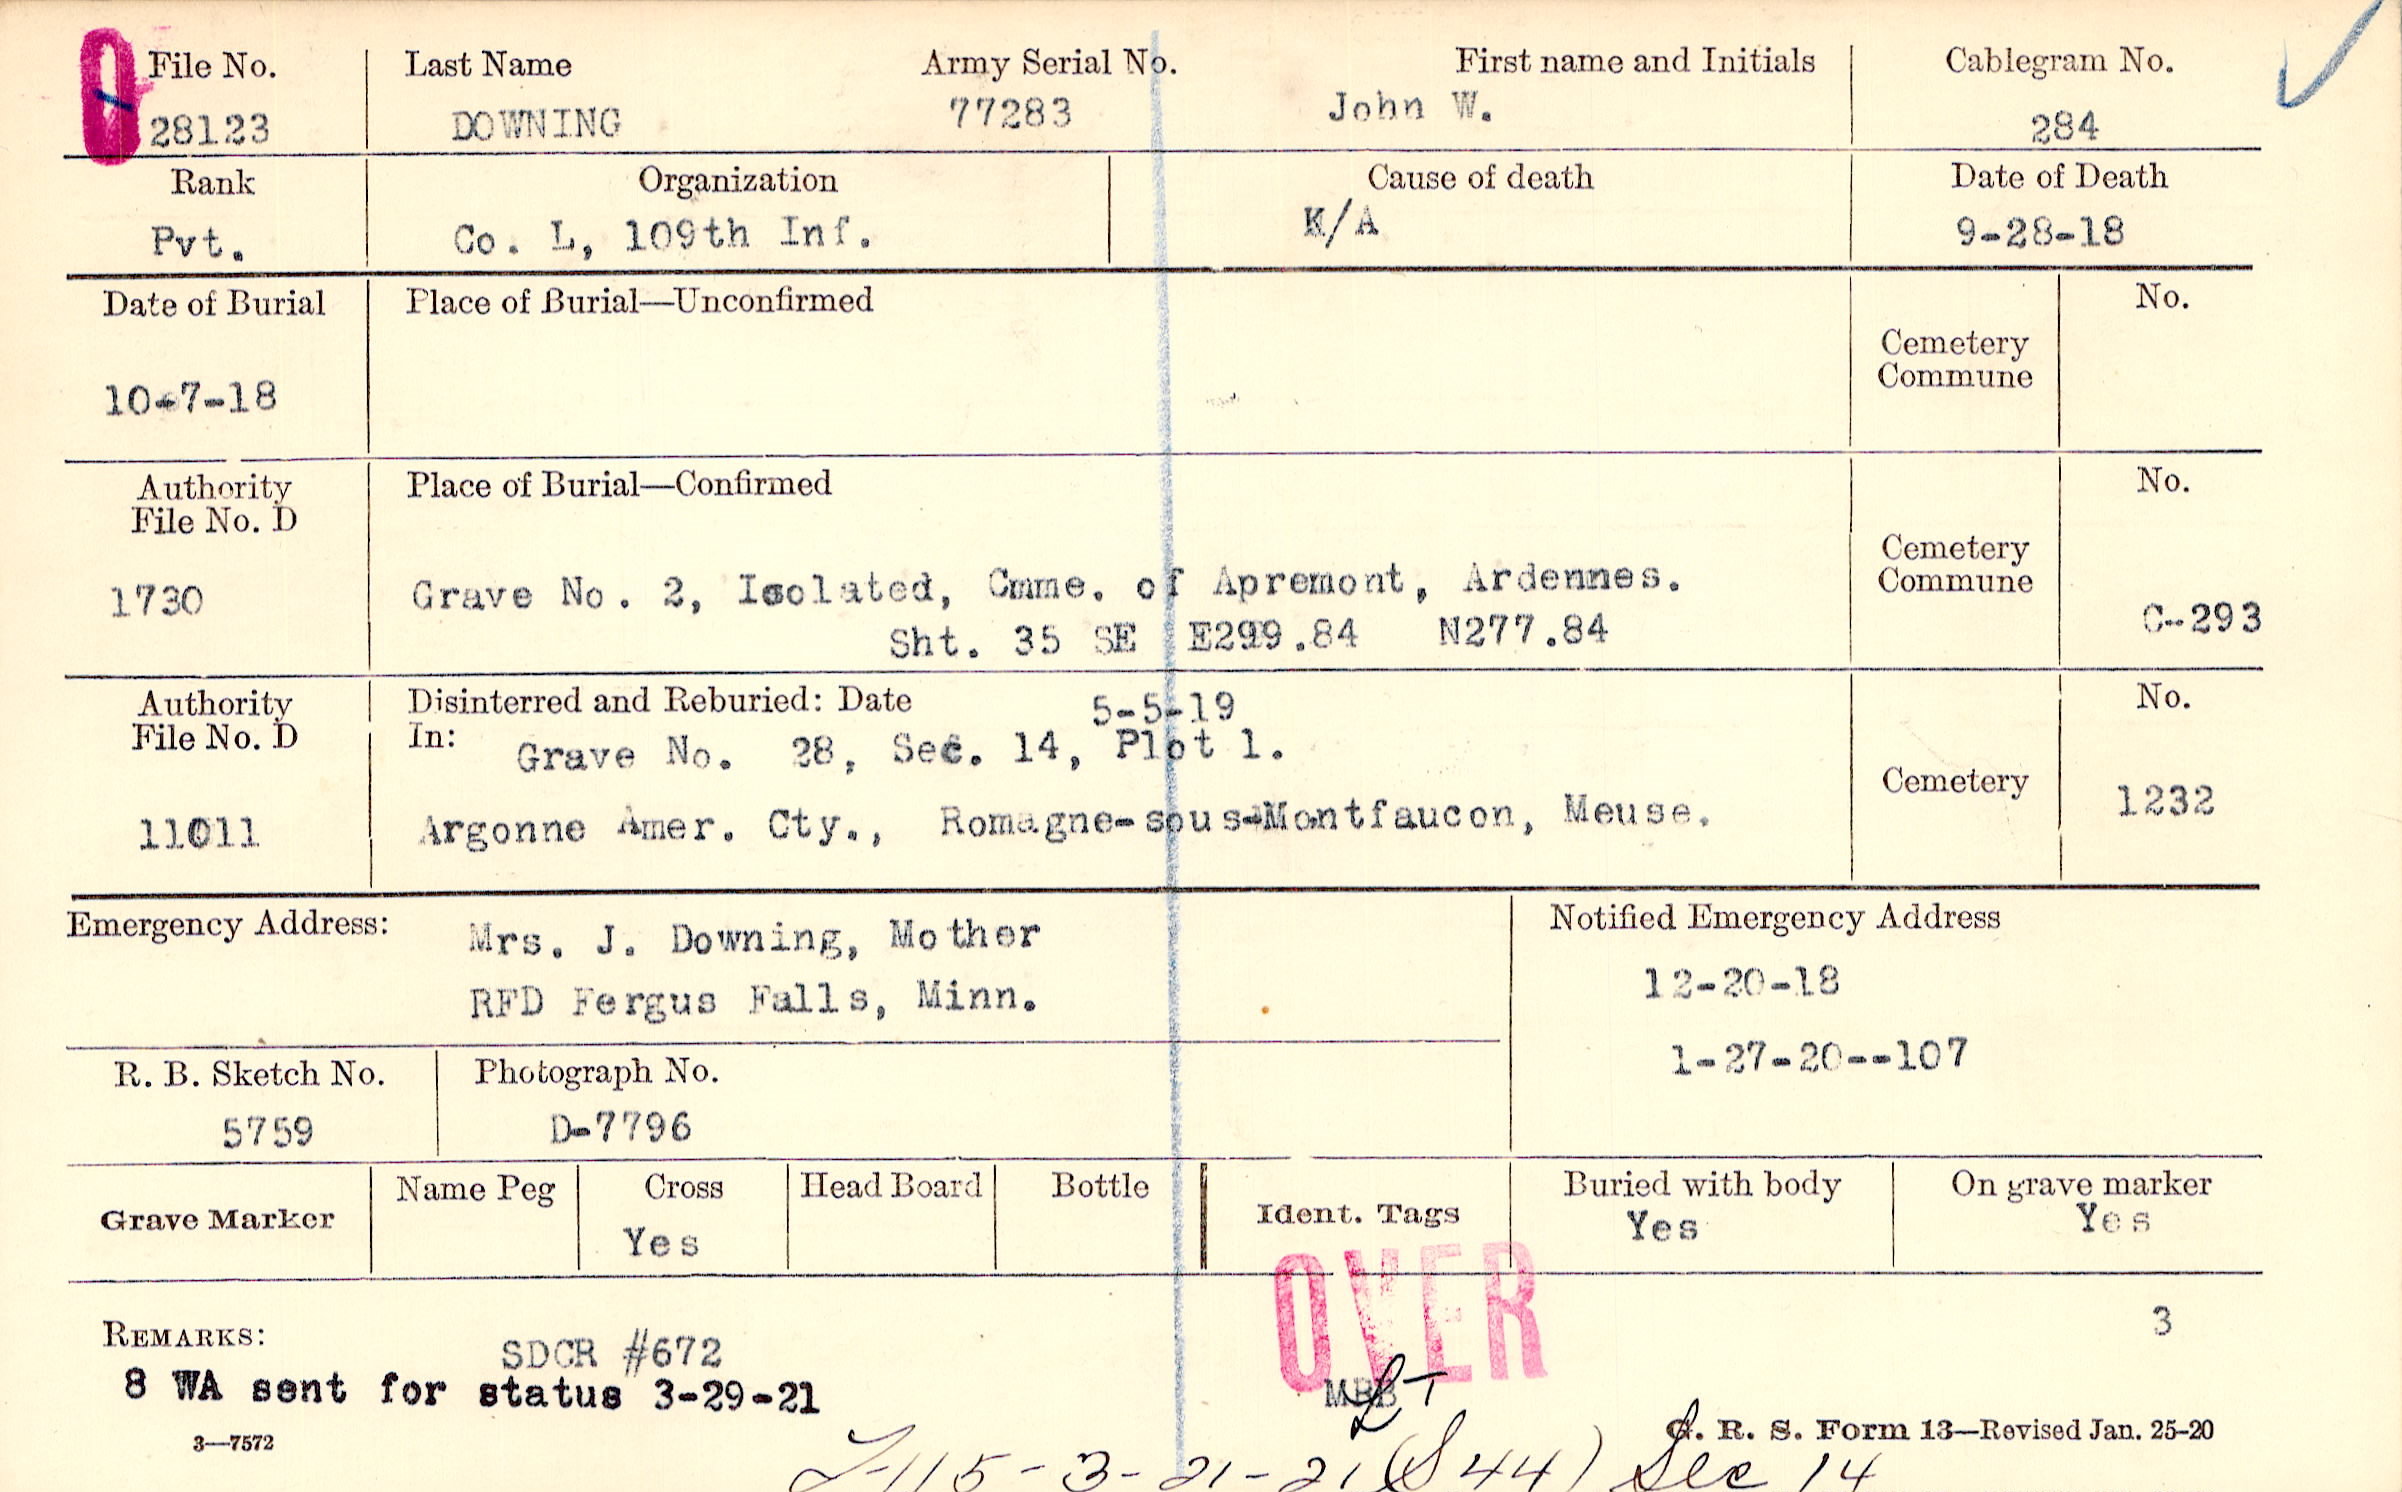 File No. Last Name Army Serial No. First name and Initials Cablegram No.
28123 DOWNING 77283 John W. 284
Rank Organization Cause of death Date of Death
Pvt. Co. L, 109th Inf. K/A 9-28-18
Date of Burial Place of Burial—Unconfirmed No.
Cemetery
Commune
10-7-18
Authority Place of Burial—Confirmed No.
File No. D
Cemetery
Commune
1730 Grave No. 2, Isolated, Cmme. of Apremont, Ardennes.
Sht. 35 SE E299.84 N277.84 C-293
Authority Disinterred and Reburied: Date 5-5-19 No.
File No. D In: Grave No. 28, Sec. 14, Plot 1.
Cemetery 1232
11011 Argonne Amer. Cty., Romagne-sous-Montfaucon, Meuse.
Emergency Address: Mrs. J. Downing, Mother Notified Emergency Address
RFD Fergus Falls, Minn. 12-20-18
1-27-20--107
R. B. Sketch No. Photograph No.
5759 D-7796
Grave Marker Name Peg Cross Head Board Bottle Ident. Tags Buried with body On grave marker
Yes Yes Yes
OVER
3
REMARKS: SDCR #672
8 WA sent for status 3-29-21 MBB
3—7572 G. R. S. Form 13—Revised Jan. 25-20
-115-3-21-21 (S44) Sec 14